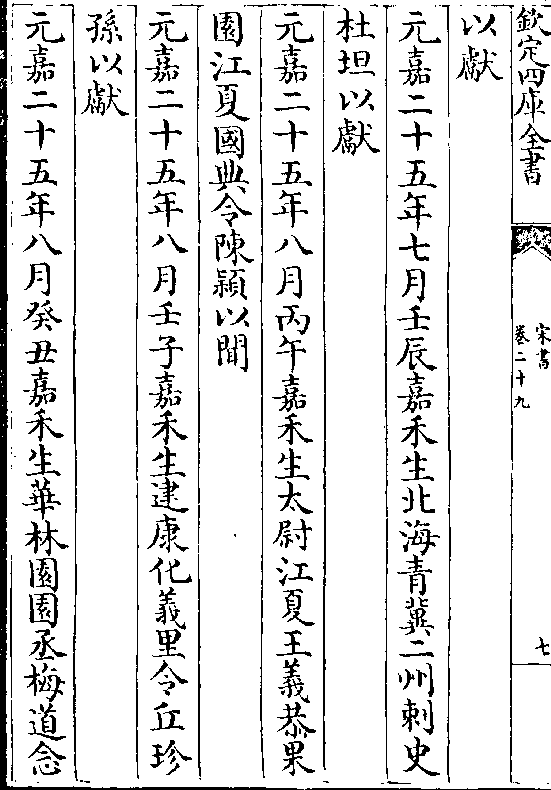 欽定四庫全書
宋書
卷二十九
七
以獻
元嘉二十五年七月壬辰嘉禾生北海青冀二州刺史
杜坦以獻
元嘉二十五年八月丙午嘉禾生太尉江夏王義恭果
園江夏國典令陳穎以聞
元嘉二十五年八月壬子嘉禾生建康化義里令丘珍
孫以獻
元嘉二十五年八月癸丑嘉禾生華林園園丞梅道念